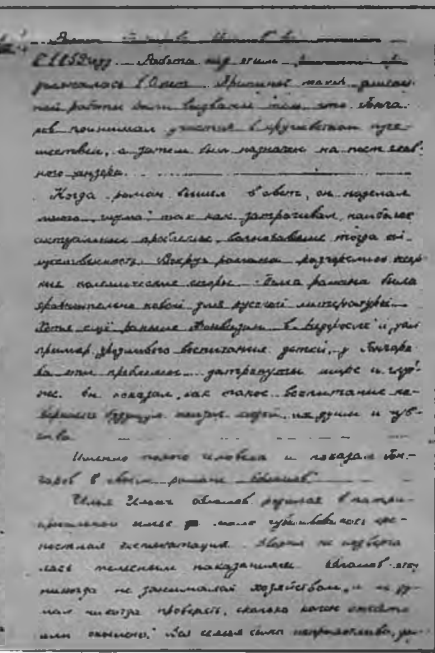 Роман
в 1859 году. Работа над этим
должалась 8 лет. Причины такой
ной работы были вызваны тем, что Гонча-
ров принимал участие в кругосветном путе-
шествии, а затем был назначен на пост глав-
ного цензора.
Когда роман вышел в свет, он наделал
много шума так как затрагивал наиболее
актуальные проблемы, волновавшие тогда об-
щественность. Вокруг романа разгорелись жар-
кие полемические споры. Тема романа была
сравнительно новой для русской литературы.
Хотя ещё раньше Фонвизин в и дал
пример уродливого воспитания детей, у Гончаро-
ва эти проблемы затронуты шире и глуб-
же. Он показал, как такое воспитание
будущую жизнь людей, их души и чув-
ства.
Именно такого человека и показал Гон-
чаров в своём романе "Обломов"
Илья Ильич Обломов родился в патри-
архальной семье мало чувствовалась кре-
постная эксплуатация. не подверга-
лась телесным наказаниям. Обломов
никогда не занимался хозяйством, и не ду-
мал никогда проверять, сколько копен
или скошено. Вся семья была неприхотлива,